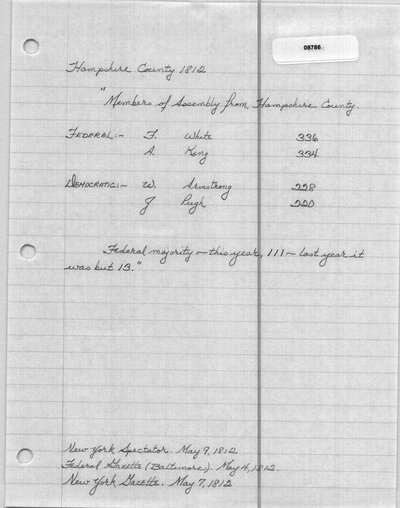 08786
Hampshire County 1812
"Members of Assembly from Hampshire County.
FEDERAL:- F. White 336
A. King 334
DEMOCRATIC:- W. Armstrong 228
J Pugh 220
Federal majority — this year, 111 — last year it
was but 13."
New York Spectator. May 9, 1812
Federal Gazette (Baltimore). May 4, 1812.
New York Gazette. May 7, 1812